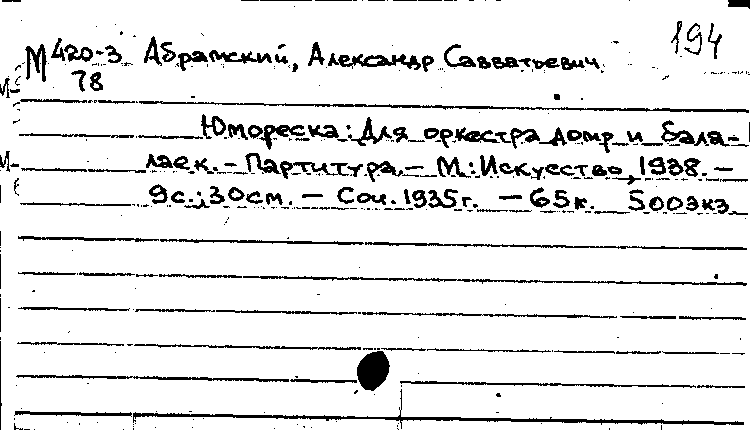 194
М 420-3 Абрамский, Александр Савватьевич
78
Юмореска: Для оркестра домр и бала-
лаек. - Партитура. - М.: Искусство, 1938. -
9с.; 30см. - Соч. 1935г. - 65к. 500экз
М-
М-
6